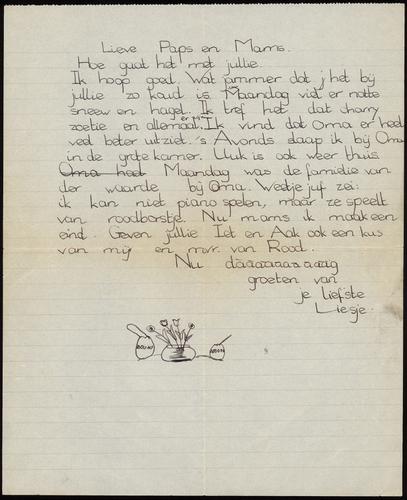 Lieve Paps en Mams.
Hoe gaat het met jullie.
Ik hoop goed. Wat jammer dat j het bij
jullie zo koud is. Maandag viel er natte
sneeuw en hagel. Ik tref het dat
zoetie en allemaal er is. Ik vind dat Oma er heel
veel beter uitziet. 's Avonds slaap ik bij Oma
in de grote kamer. Uuk is ook weer thuis
Oma heel Maandag was de familie van
der waarde bij Oma. Weetje juf zei:
ik kan niet piano spelen, maar ze speelt
van roodborstje. Nu mams ik maak een
eind. Geven jullie Iet en Aak ook een kus
van mij en mvr. van Rood.
Nu daaaaaaaaaaag
groeten van
je liefste
Liesje.